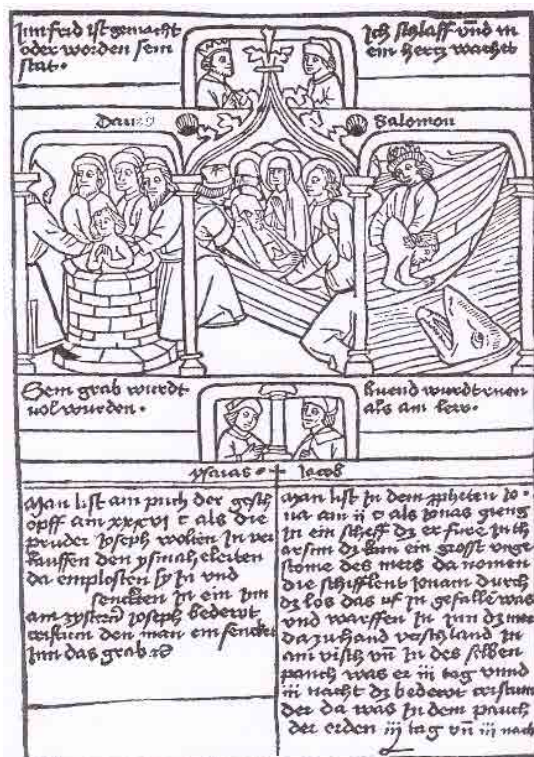 Im frid ist gemacht
oder worden sein
stat.
Ich schlaff vnd in
ein hertz wachet
Dauid
Salomon
Sein grab wurdt
vol wurden.
als am lew.
ysaias
Jacob
Man list am puch der gesch
opff am xxxvi c als die
pruder Joseph wolten In ver
kauffen den ysmaheleiten
da emplosten sy In vnd
sencken in ein
am zystern Joseph bedewt
cristum den man ein sencket
Inn das grab
Man list In dem propheten Jo
na am ii c als Jonas gieng
In ein scheff dz er fure In th
arsim dz kam ein grosst vnge
stome des mers da nomen
die schifflent Jonam durch
dz los das vf In gefallen was
vnd warffen In Inn dz mer
da zuhand verschland In
am visch vn In des selben
pauch was er iii tag vnnd
iii nacht dz bedewt cristum
der da was In dem pauch
der erden iii tag vn iii nach